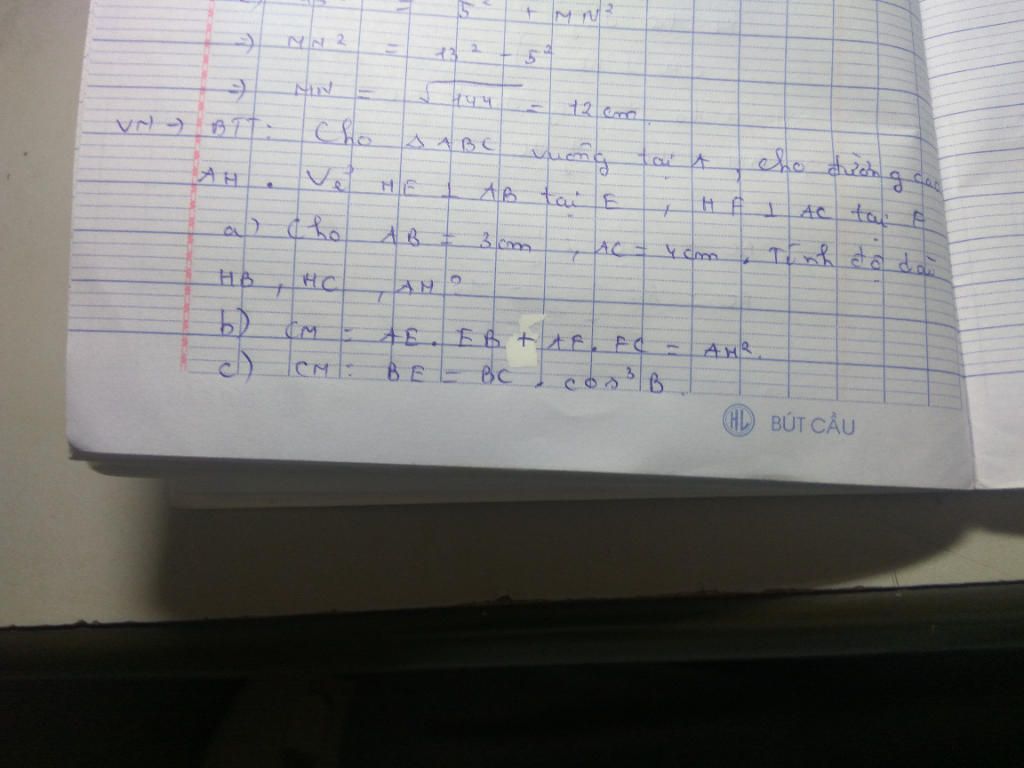 = 5² + MN²
=> MN² = 13² - 5²
=> MN = √144 = 12 cm.
VN -> BTT: Cho Δ ABC vuông tại A, cho đường cao
AH. Vẽ HE ⊥ AB tại E, HF ⊥ AC tại F
a) Cho AB = 3cm, AC = 4cm. Tính độ dài
HB, HC, AH?
b) CM: AE. EB + AF. FC = AH².
c) CM: BE = BC. cos³B.
HL BÚT CẦU